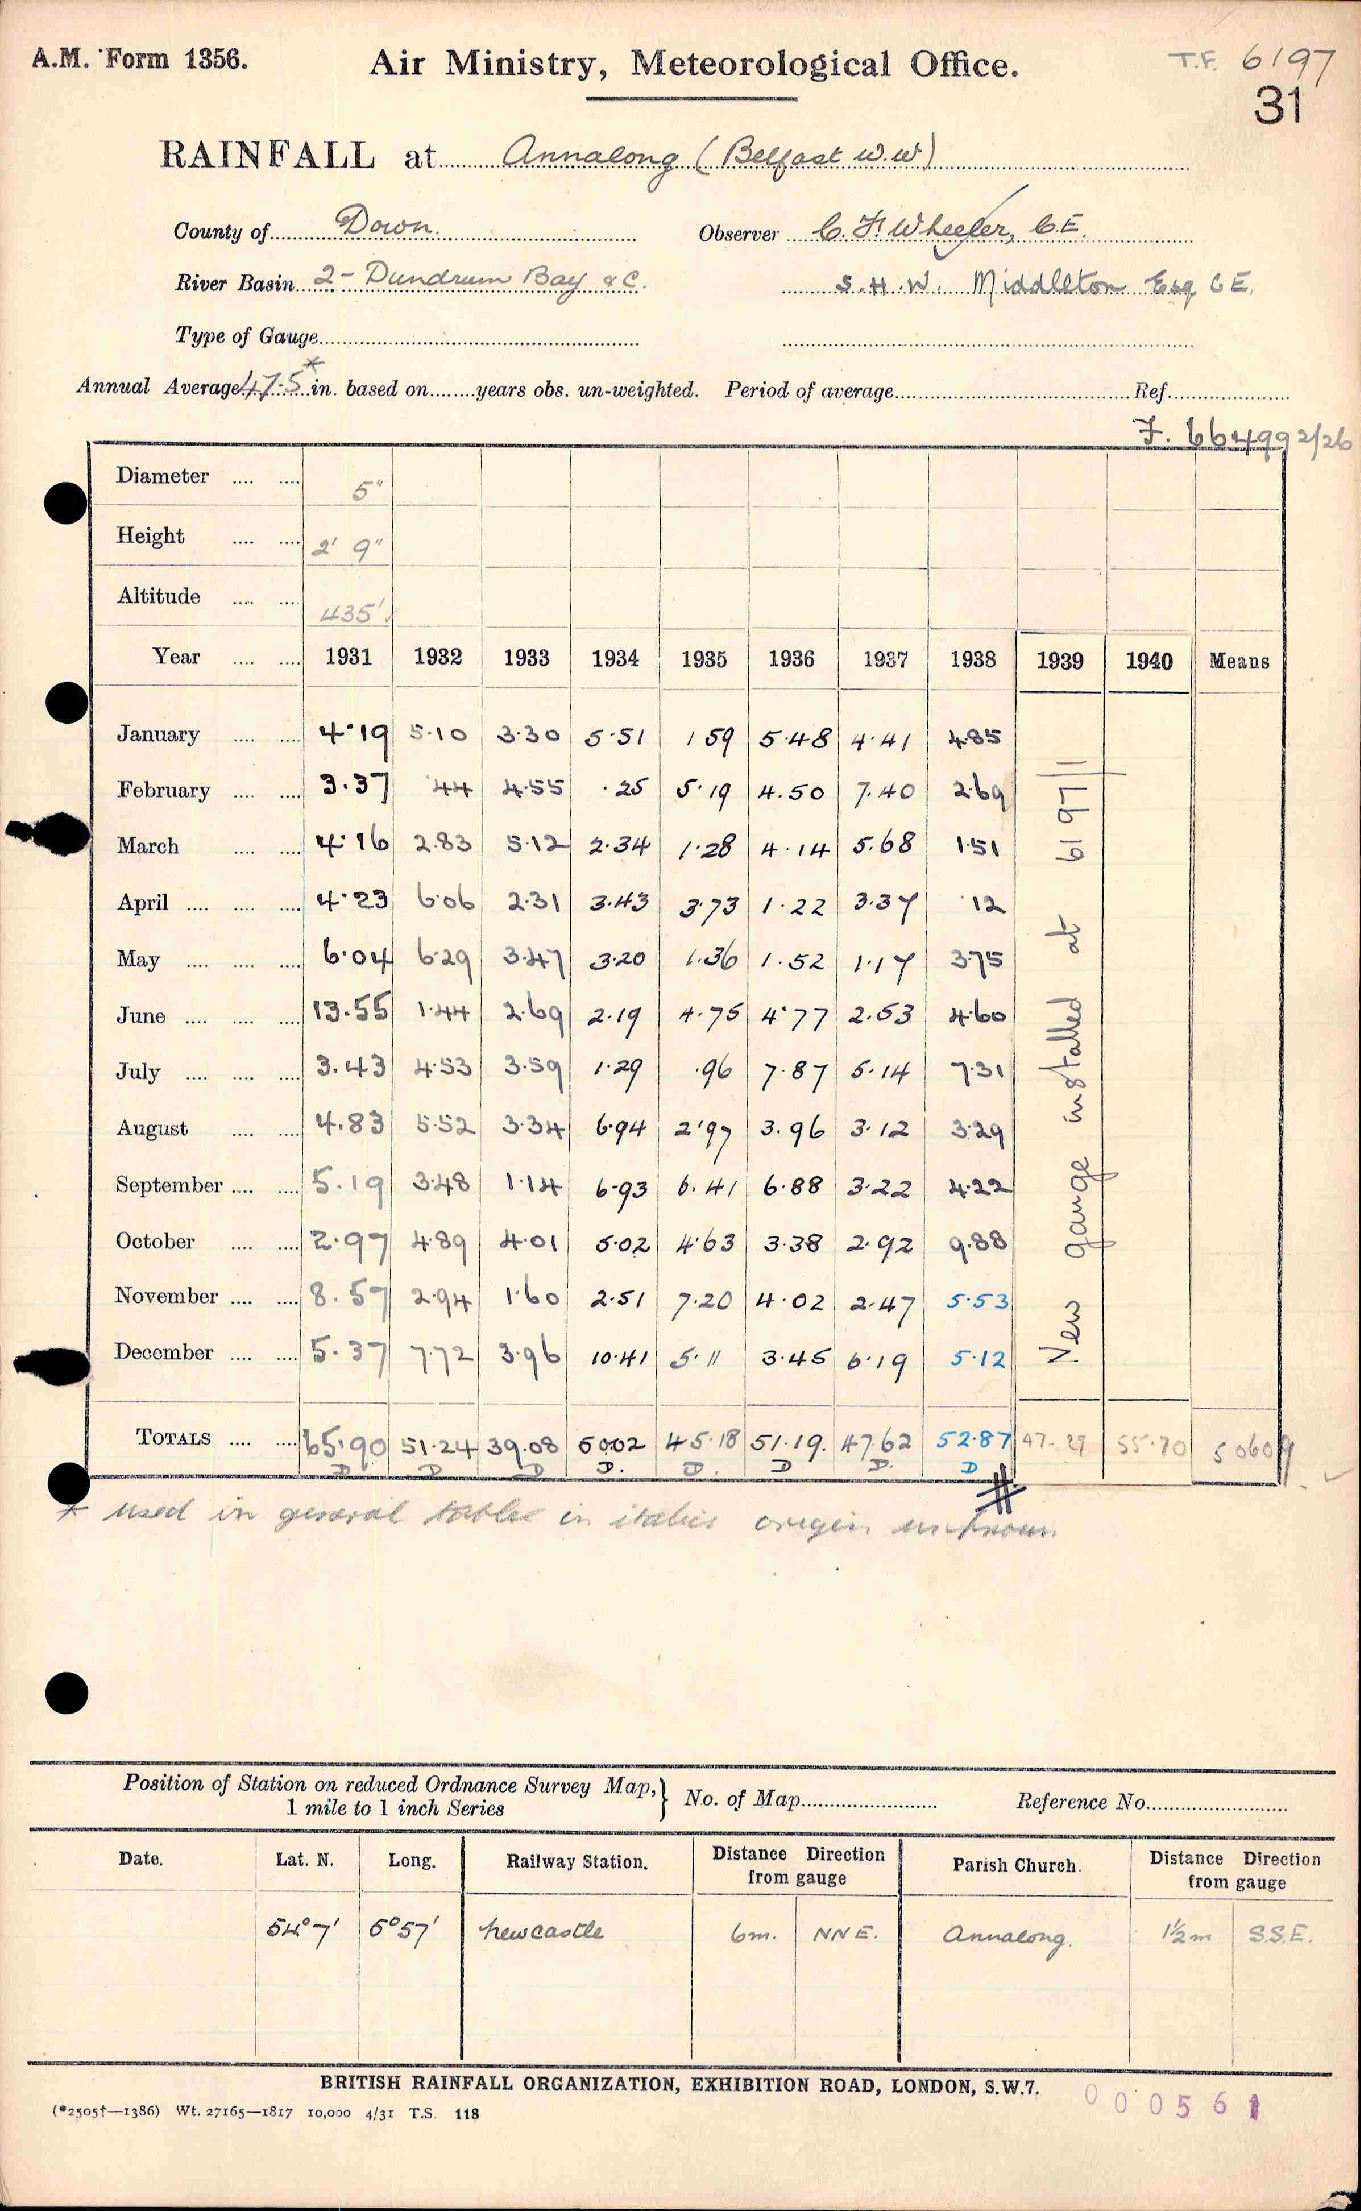 A.M. Form 1356.
Air Ministry, Meteorological Office.
T.F. 6197
31
RAINFALL at Annalong (Belfast W.W)
County of Down. Observer C. F. Wheeler, C.E.
River Basin 2 - Dundrum Bay &C. S.H.W. Middleton Esq C E.
Type of Gauge
Annual Average 47.5* in. based on years obs. un-weighted. Period of average Ref.
F. 664992/26
Diameter 5"
Height 2' 9"
Altitude 435'
Year 1931 1932 1933 1934 1935 1936 1937 1938 1939 1940 Means
January 4.19 5.10 3.30 5.51 1 59 5.48 4.41 4.85
February 3.37 .44 4.55 .25 5.19 4.50 7.40 2.69
March 4.16 2.83 5.12 2.34 1.28 4.14 5.68 1.51
April 4.23 6.06 2.31 3.43 3.73 1.22 3.37 .12
May 6.04 6.29 3.47 3.20 1.36 1.52 1.17 3.75
June 13.55 1.44 2.69 2.19 4.75 4.77 2.53 4.60
July 3.43 4.53 3.59 1.29 .96 7.87 5.14 7.31
August 4.83 5.52 3.34 6.94 2.97 3.96 3.12 3.29
September 5.19 3.48 1.14 6.93 6.41 6.88 3.22 4.22
October 2.97 4.89 4.01 5.02 4.63 3.38 2.92 9.88
November 8.57 2.94 1.60 2.51 7.20 4.02 2.47 5.53
December 5.37 7.72 3.96 10.41 5.11 3.45 6.19 5.12
New gauge installed at 6197/1
TOTALS 65.90 51.24 39.08 50.02 45.18 51.19. 47.62 52.87 47.29 55.70 50609
D D D D. D. D D. D
#
* used in general table in italics origin unknown
Position of Station on reduced Ordnance Survey Map, 1 mile to 1 inch Series } No. of Map Reference No.
Date. Lat. N. Long. Railway Station. Distance Direction from gauge Parish Church. Distance Direction from gauge
54°7' 5°57' Newcastle 6m. NNE. Annalong. 1½m S.S.E.
BRITISH RAINFALL ORGANIZATION, EXHIBITION ROAD, LONDON, S.W.7.
000561
(*2505†—1386) Wt. 27165—1817 10,000 4/31 T.S. 118